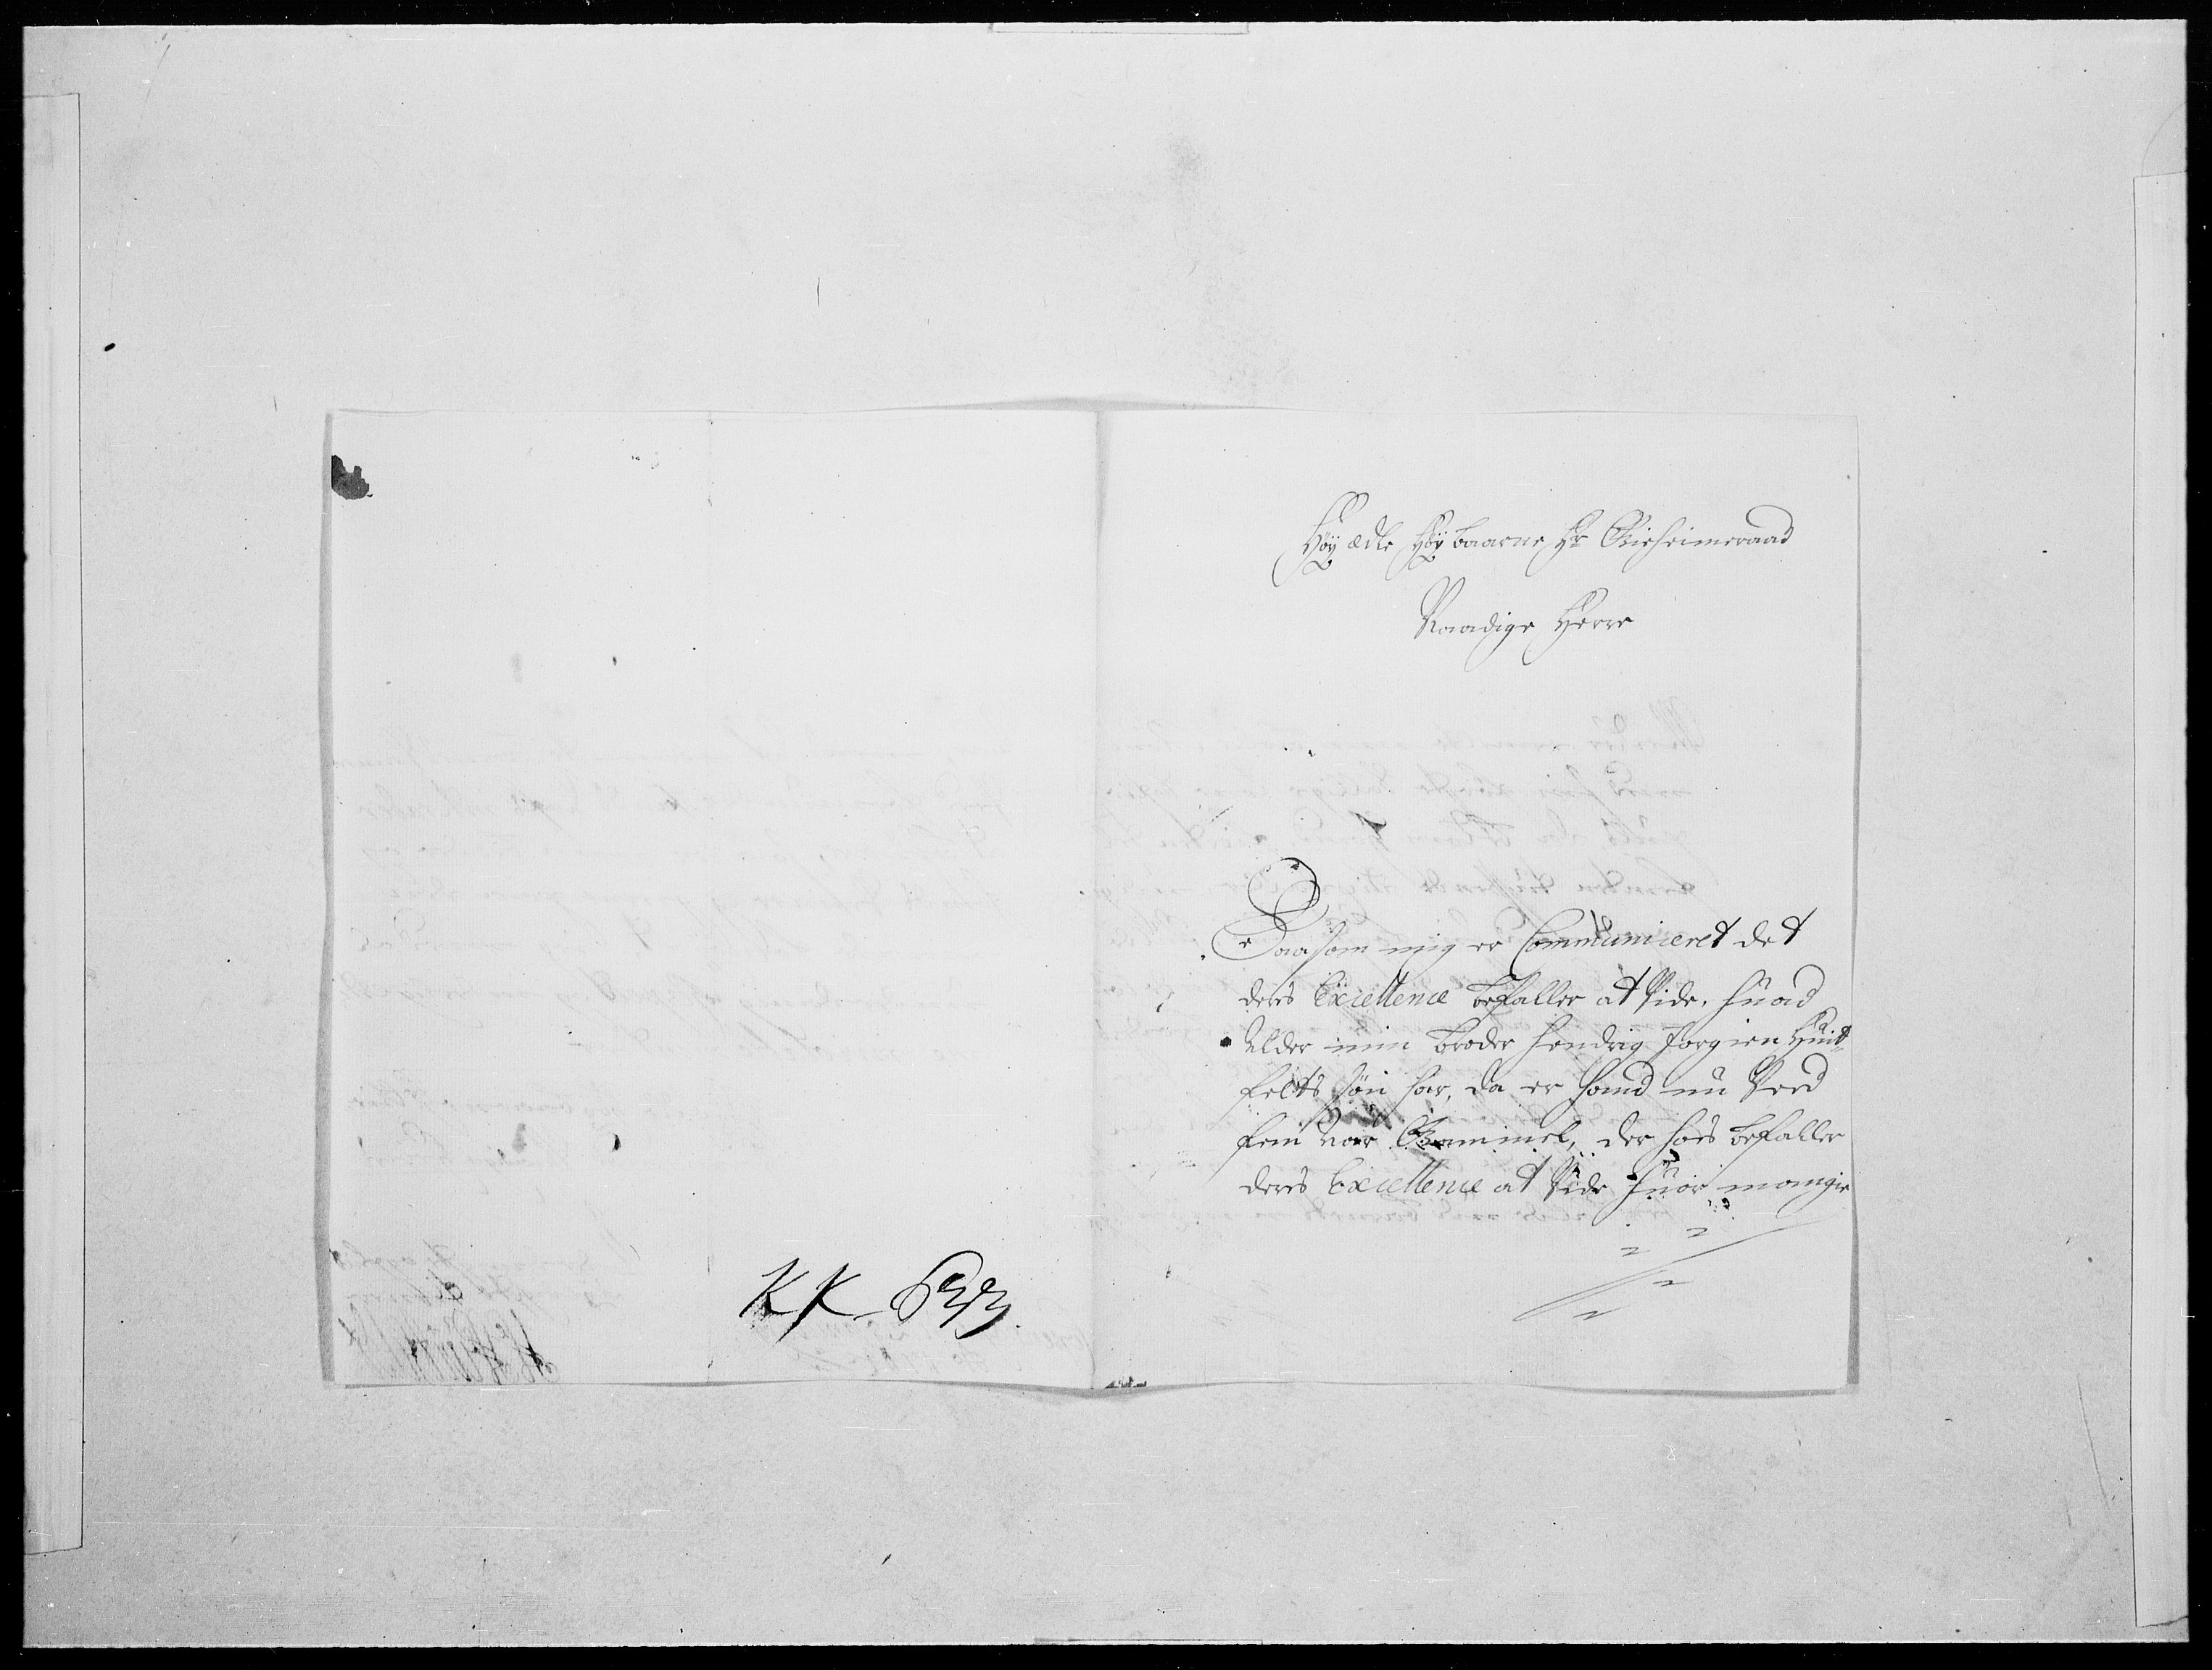 Høÿ ædle Høÿ baarne Hr Gieheimeraad
Naadige Herre
Saasom mig er Communiceret det
deris Excellence befaller at vide, huad
Alder min broder Hendrig Jørgien Huit
feltz søn har, da er hand nu Ved
fem aar Gammel, der hoes befaller
deris Excellence at vide huor mange
KK